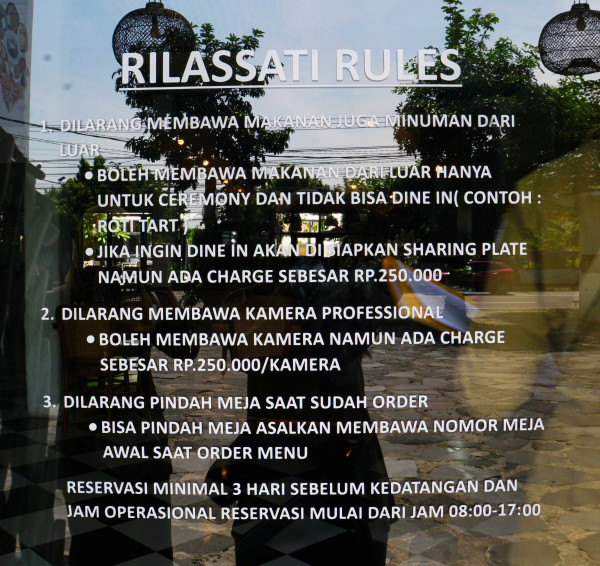 RILASSATI RULES
1. DILARANG MEMBAWA MAKANAN JUGA MINUMAN DARI
LUAR
• BOLEH MEMBAWA MAKANAN DARI LUAR HANYA
UNTUK CEREMONY DAN TIDAK BISA DINE IN( CONTOH :
ROTI TART )
• JIKA INGIN DINE IN AKAN DISIAPKAN SHARING PLATE
NAMUN ADA CHARGE SEBESAR RP.250.000
2. DILARANG MEMBAWA KAMERA PROFESSIONAL
• BOLEH MEMBAWA KAMERA NAMUN ADA CHARGE
SEBESAR RP.250.000/KAMERA
3. DILARANG PINDAH MEJA SAAT SUDAH ORDER
• BISA PINDAH MEJA ASALKAN MEMBAWA NOMOR MEJA
AWAL SAAT ORDER MENU
RESERVASI MINIMAL 3 HARI SEBELUM KEDATANGAN DAN
JAM OPERASIONAL RESERVASI MULAI DARI JAM 08:00-17:00